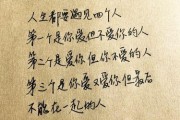 人生都要遇见四个人
第一个是你爱但不爱你的人
第二个是爱你但你不爱的人
第三个是你爱又爱你但最后
不能在一起的人